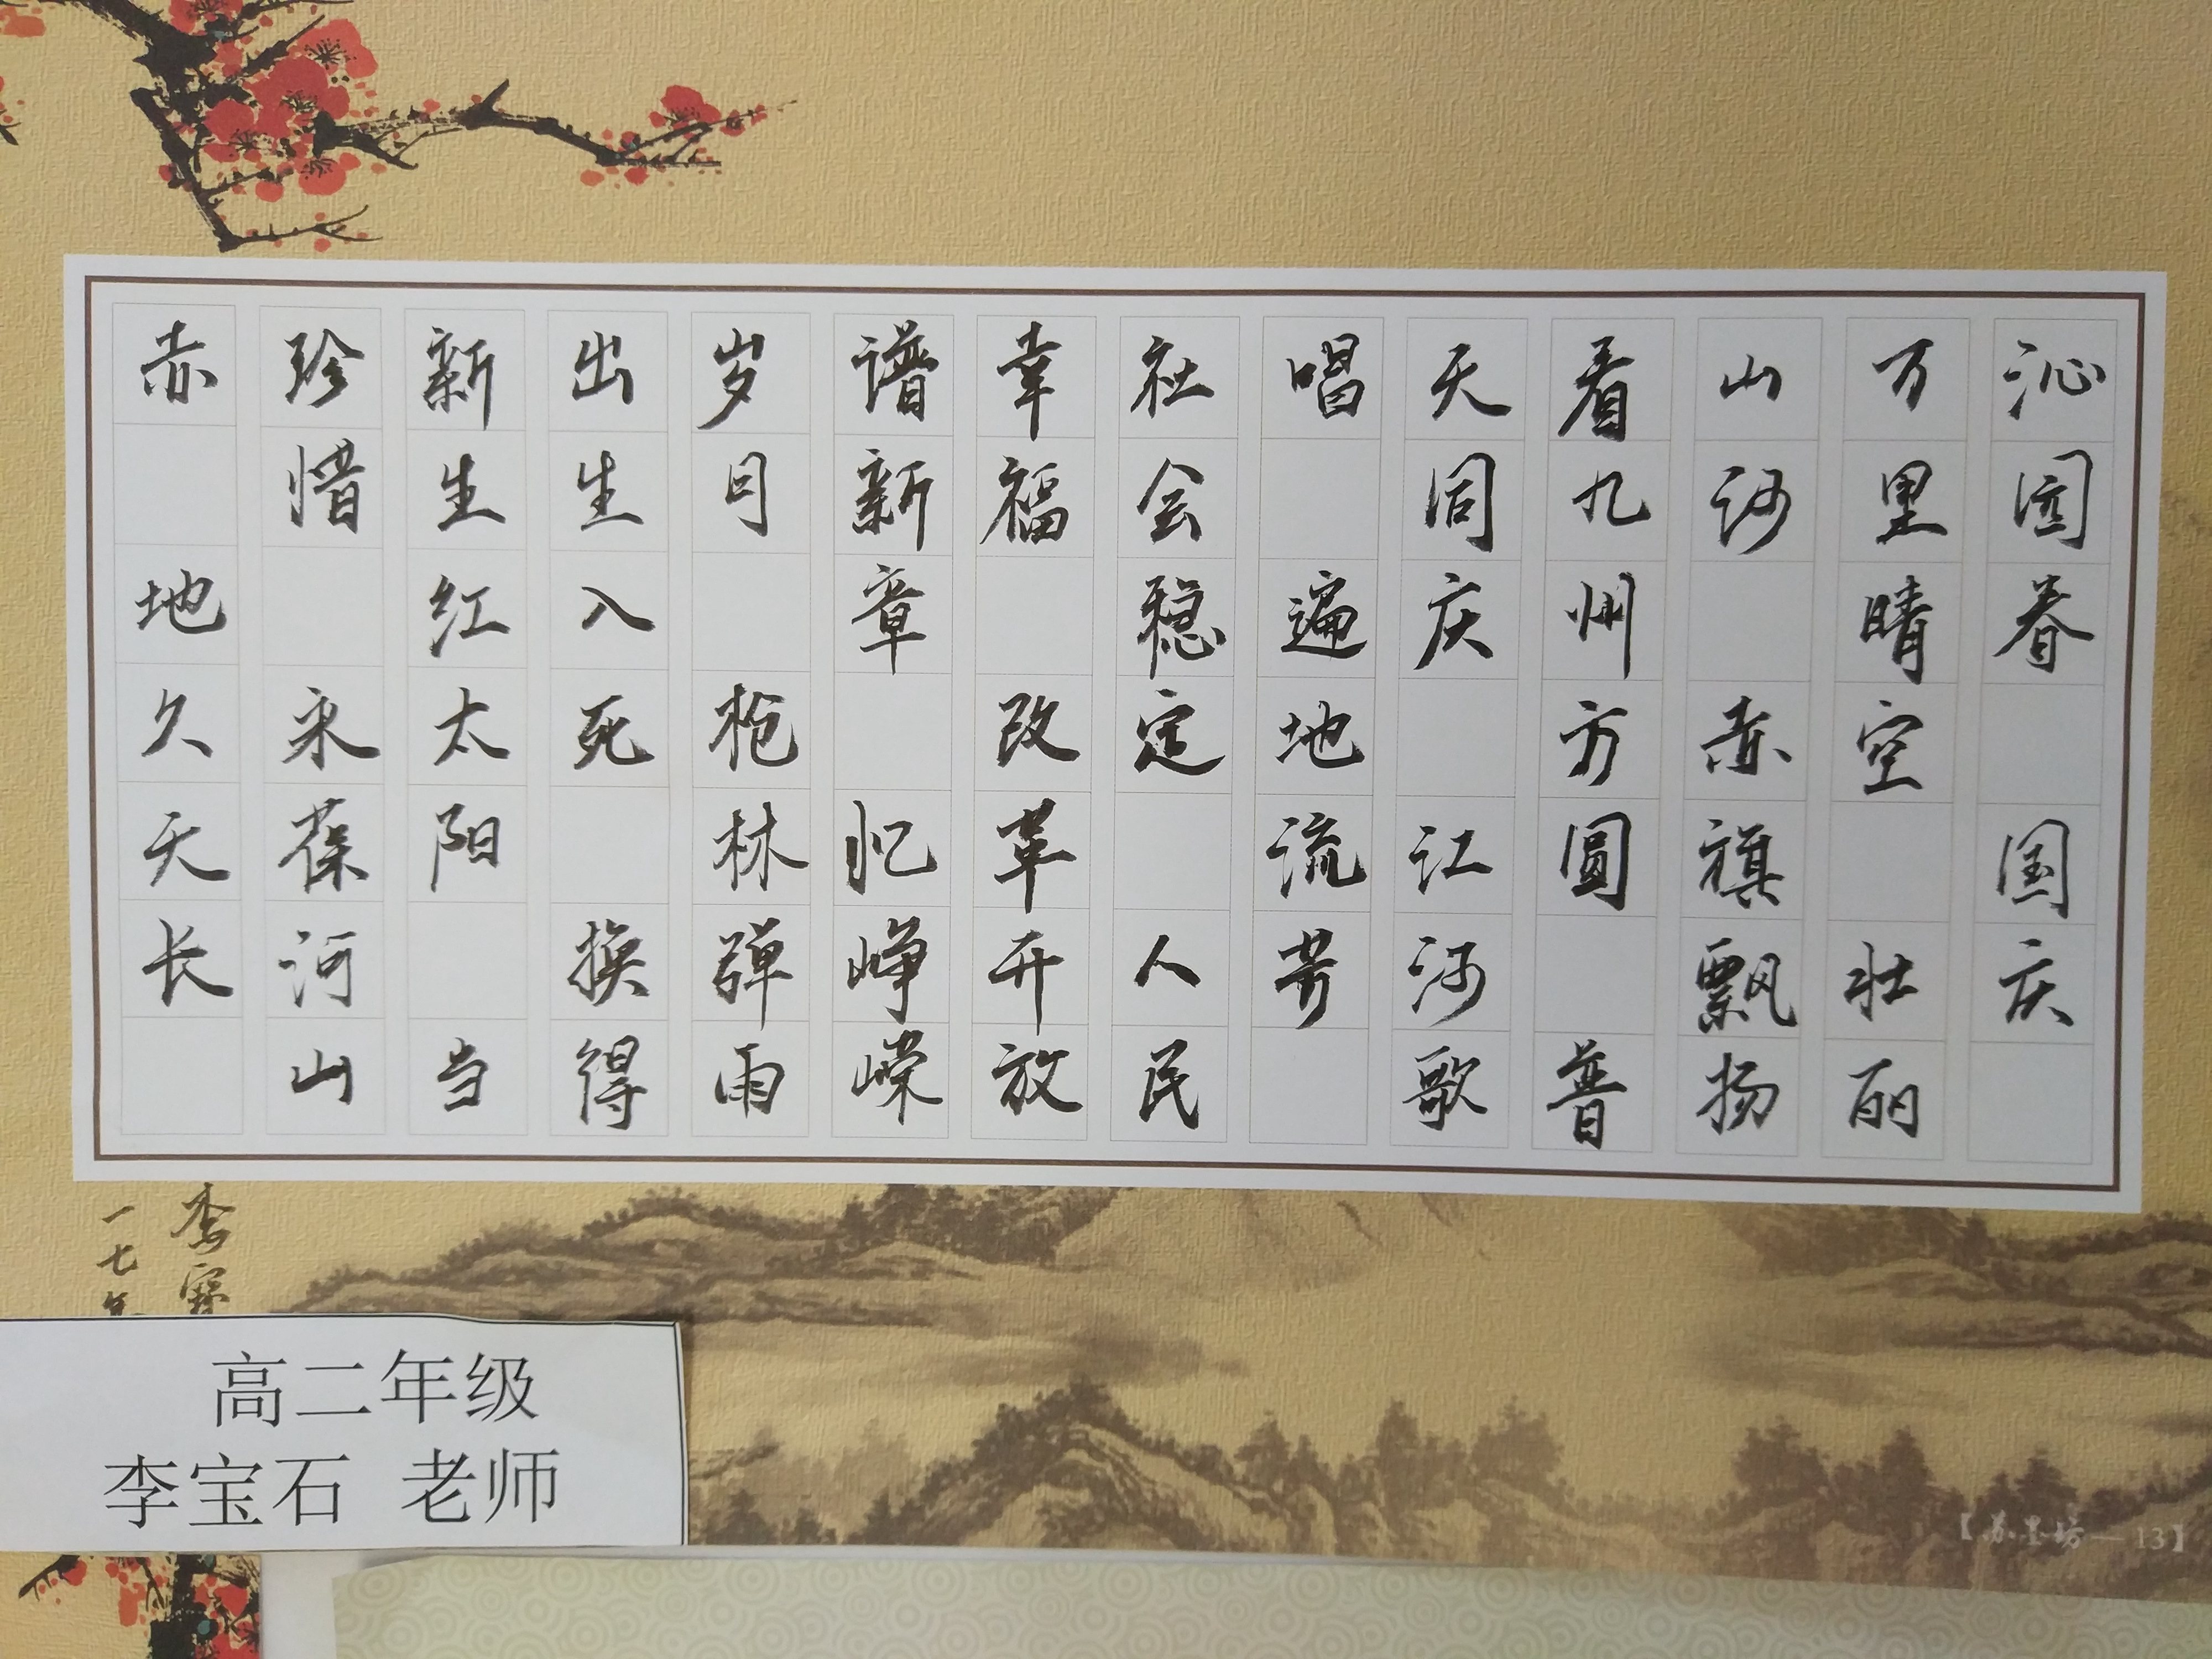 沁园春 国庆
万里晴空 壮丽
山河 赤旗飘扬
看九州方圆 普
天同庆 江河歌
唱 遍地流芳
社会稳定 人民
幸福 改革开放
谱新章 忆峥嵘
岁月 枪林弹雨
出生入死 换得
新生红太阳 当
珍惜 永葆河山
赤 地久天长
李
一七年
高二年级
李宝石 老师
【苏墨坊—13】